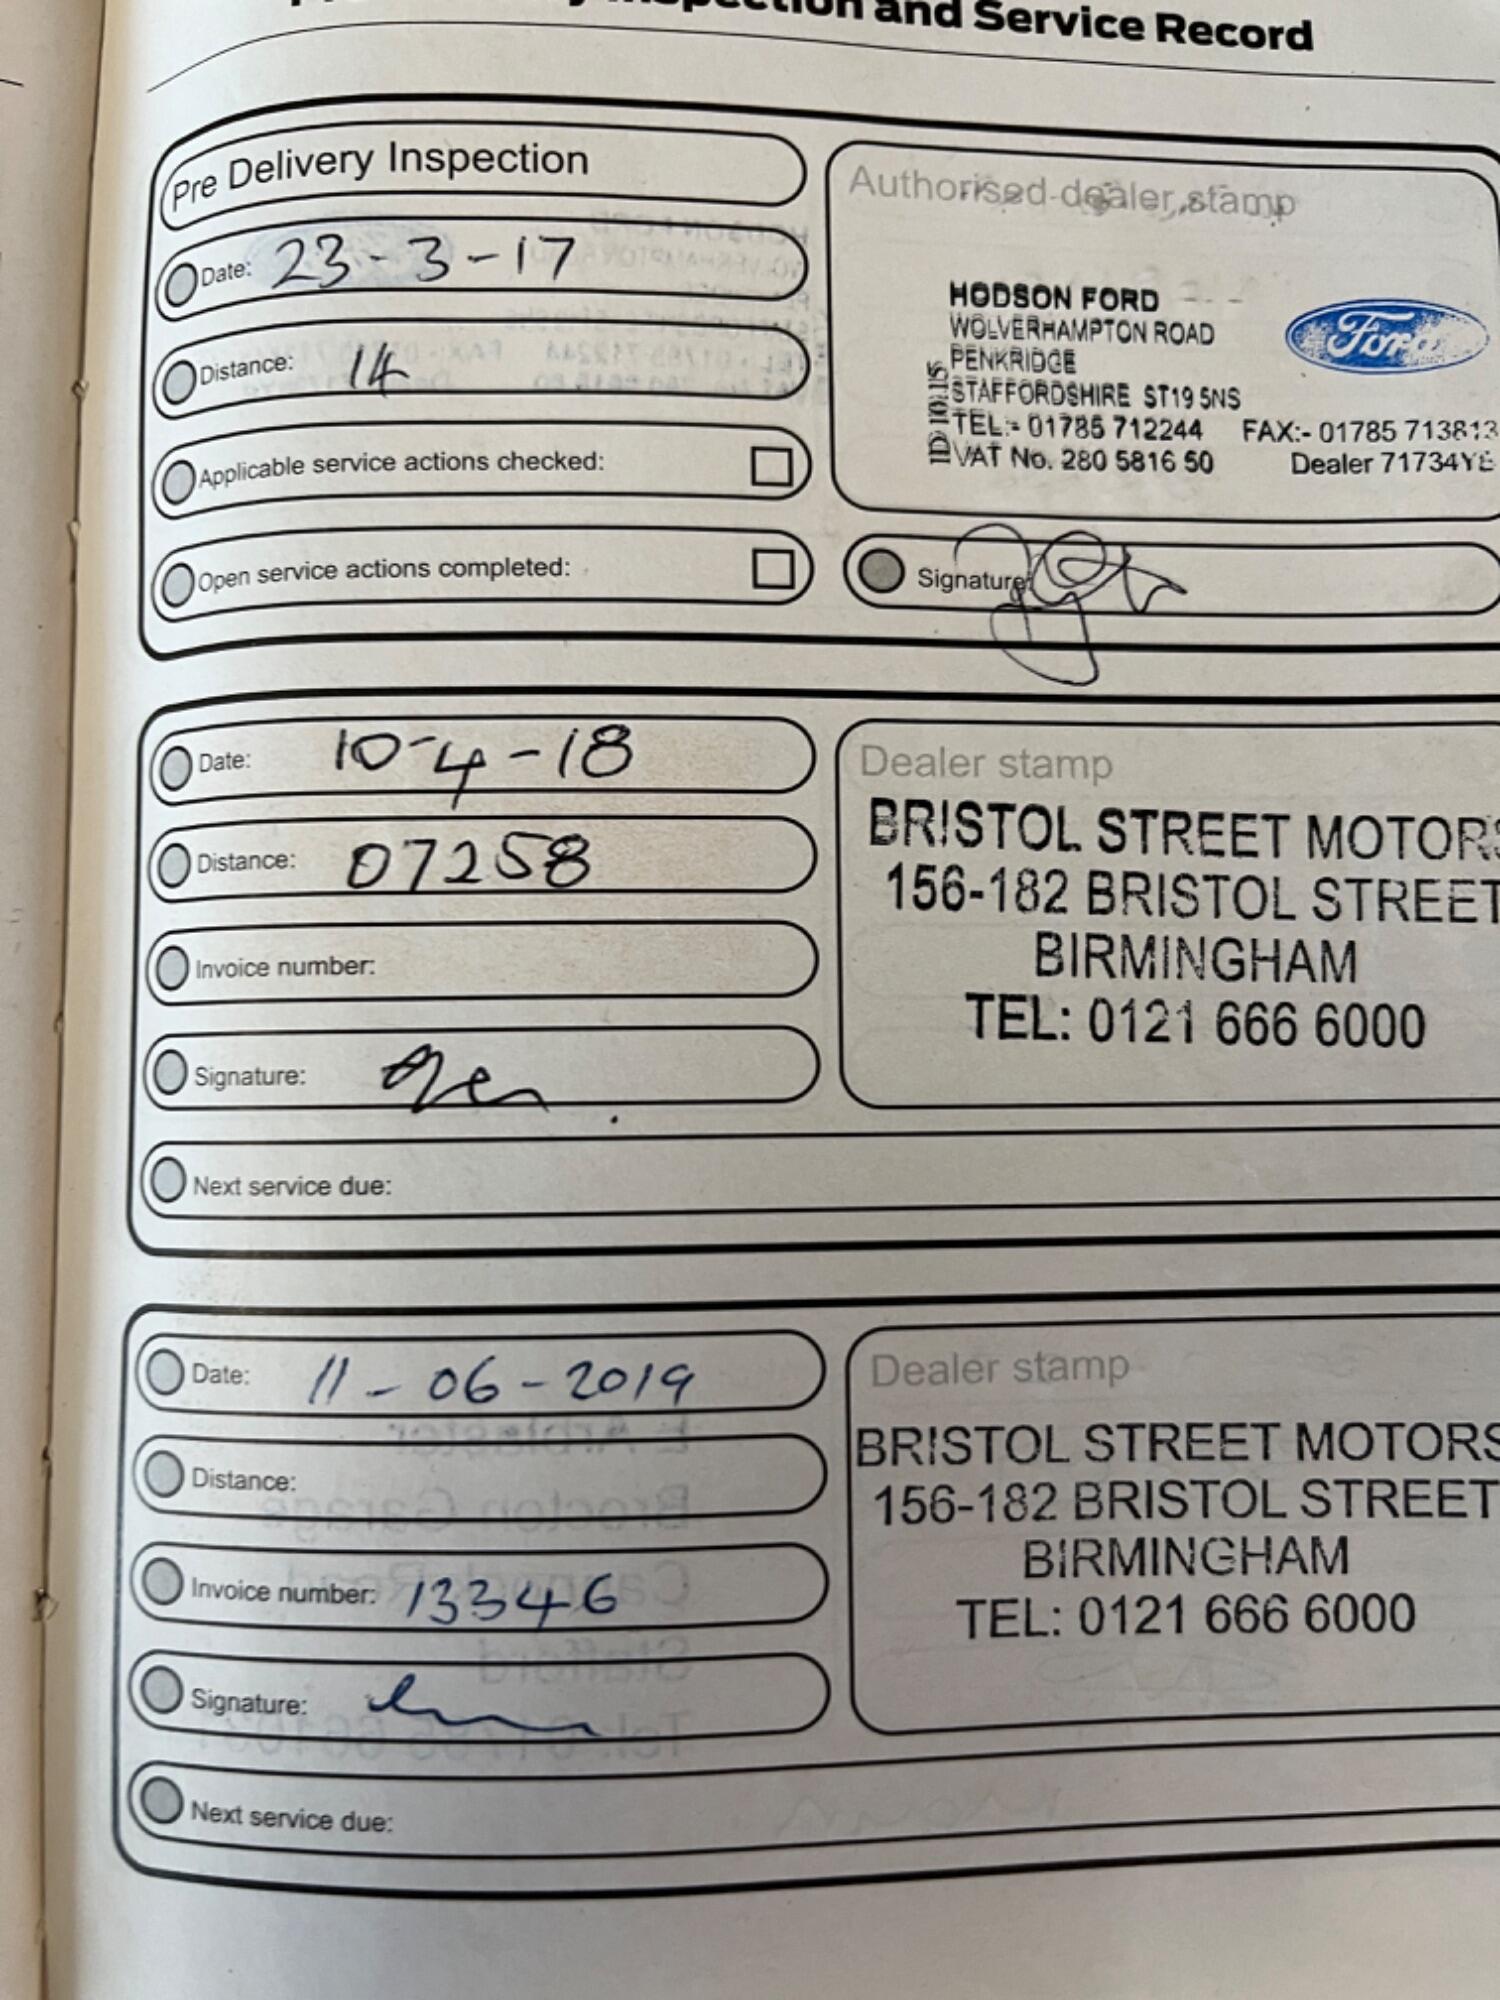 and Service Record
Pre Delivery Inspection
Date: 23-3-17
Distance: 14
Applicable service actions checked:
Open service actions completed:
Authorised dealer stamp
HODSON FORD
WOLVERHAMPTON ROAD
PENKRIDGE
STAFFORDSHIRE ST19 5NS
TEL:- 01785 712244 FAX:- 01785 713813
VAT No. 280 5816 50 Dealer 71734YE
Ford
Signature:
Date: 10-4-18
Distance: 07258
Invoice number:
Signature:
Next service due:
Dealer stamp
BRISTOL STREET MOTORS
156-182 BRISTOL STREET
BIRMINGHAM
TEL: 0121 666 6000
Date: 11-06-2019
Distance:
Invoice number: 13346
Signature:
Next service due:
Dealer stamp
BRISTOL STREET MOTORS
156-182 BRISTOL STREET
BIRMINGHAM
TEL: 0121 666 6000